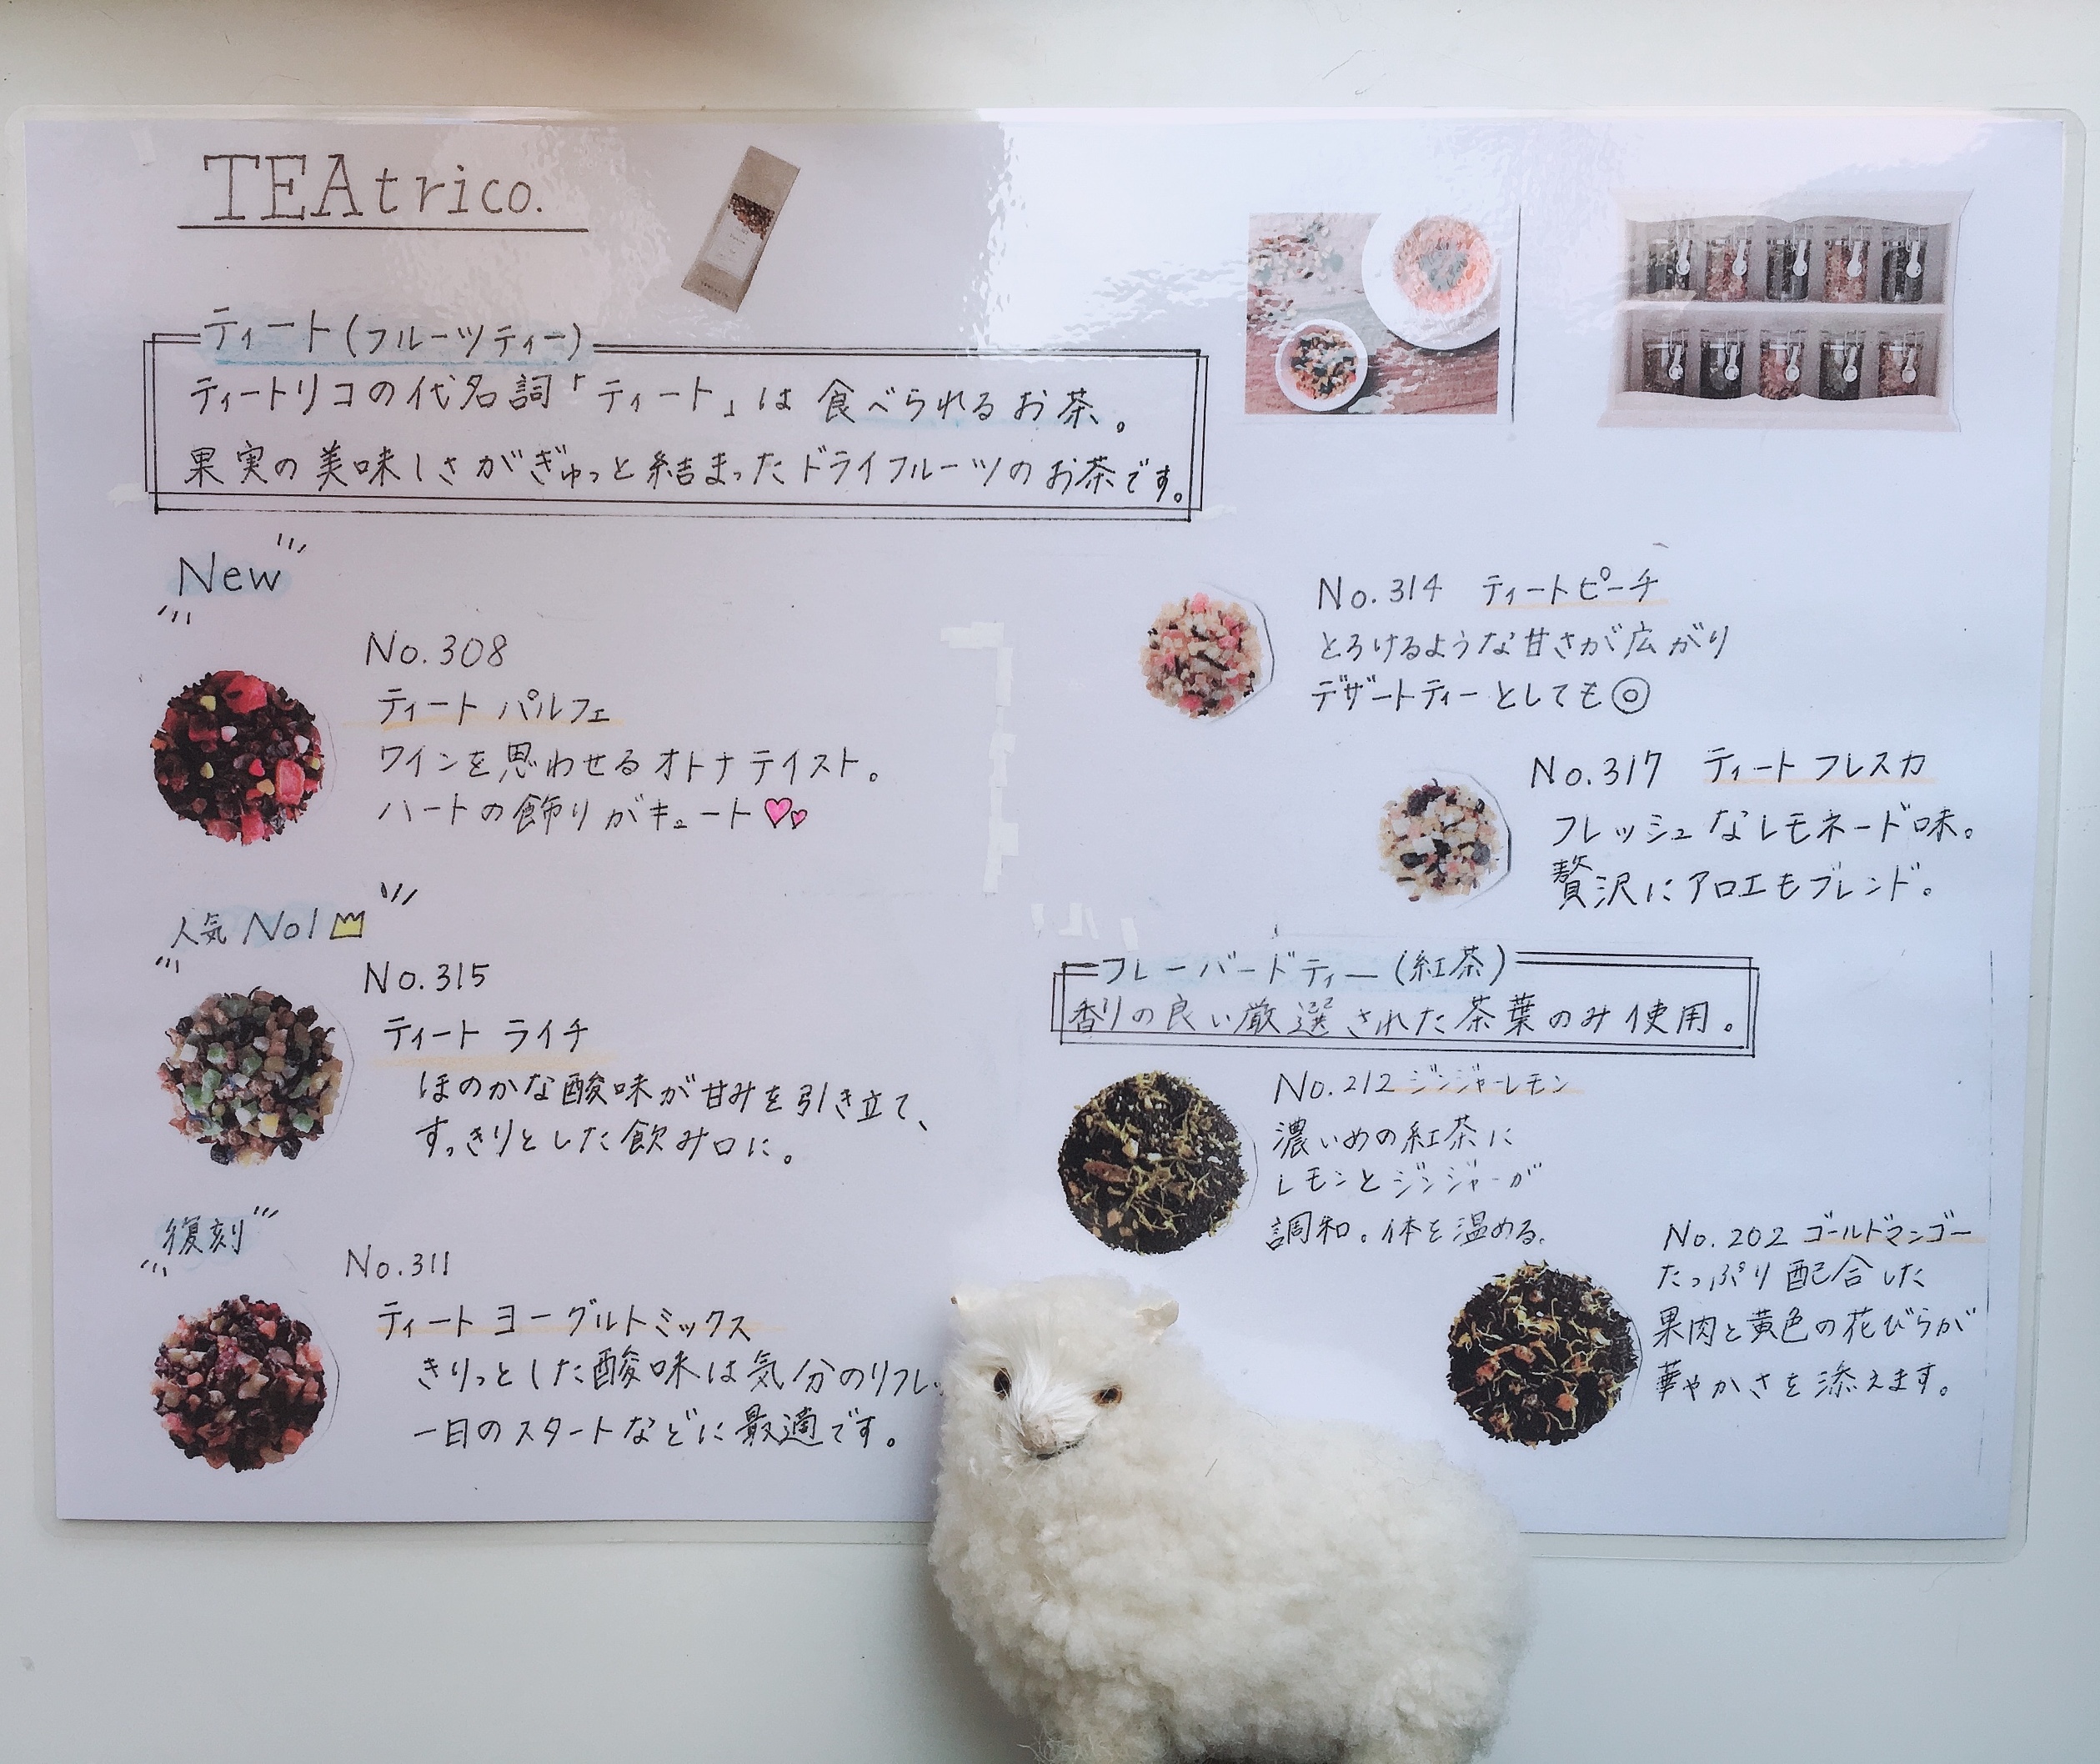 TEAtrico.
ティート(フルーツティー)
ティートリコの代名詞「ティート」は食べられるお茶。
果実の美味しさがぎゅっと結まったドライフルーツのお茶です。
New
No.308
ティート パルフェ
ワインを思わせるオトナテイスト。
ハートの飾りがキュート
人気 No1
No.315
ティート ライチ
ほのかな酸味が甘みを引き立て、
すっきりとした飲み口に。
復刻
No.311
ティート ヨーグルトミックス
きりっとした酸味は気分のリフレ
一日のスタートなどに最適です。
No.314 ティートピーチ
とろけるような甘さが広がり
デザートティーとしても◎
No.317 ティート フレスカ
フレッシュなレモネード味。
贅沢にアロエもブレンド。
フレーバードティー(紅茶)
香りの良い厳選された茶葉のみ使用。
No.212 ジンジャーレモン
濃いめの紅茶に
レモンとジンジャーが
調和。体を温める。
No.202 ゴールドマンゴー
たっぷり配合した
果肉と黄色の花びらが
華やかさを添えます。